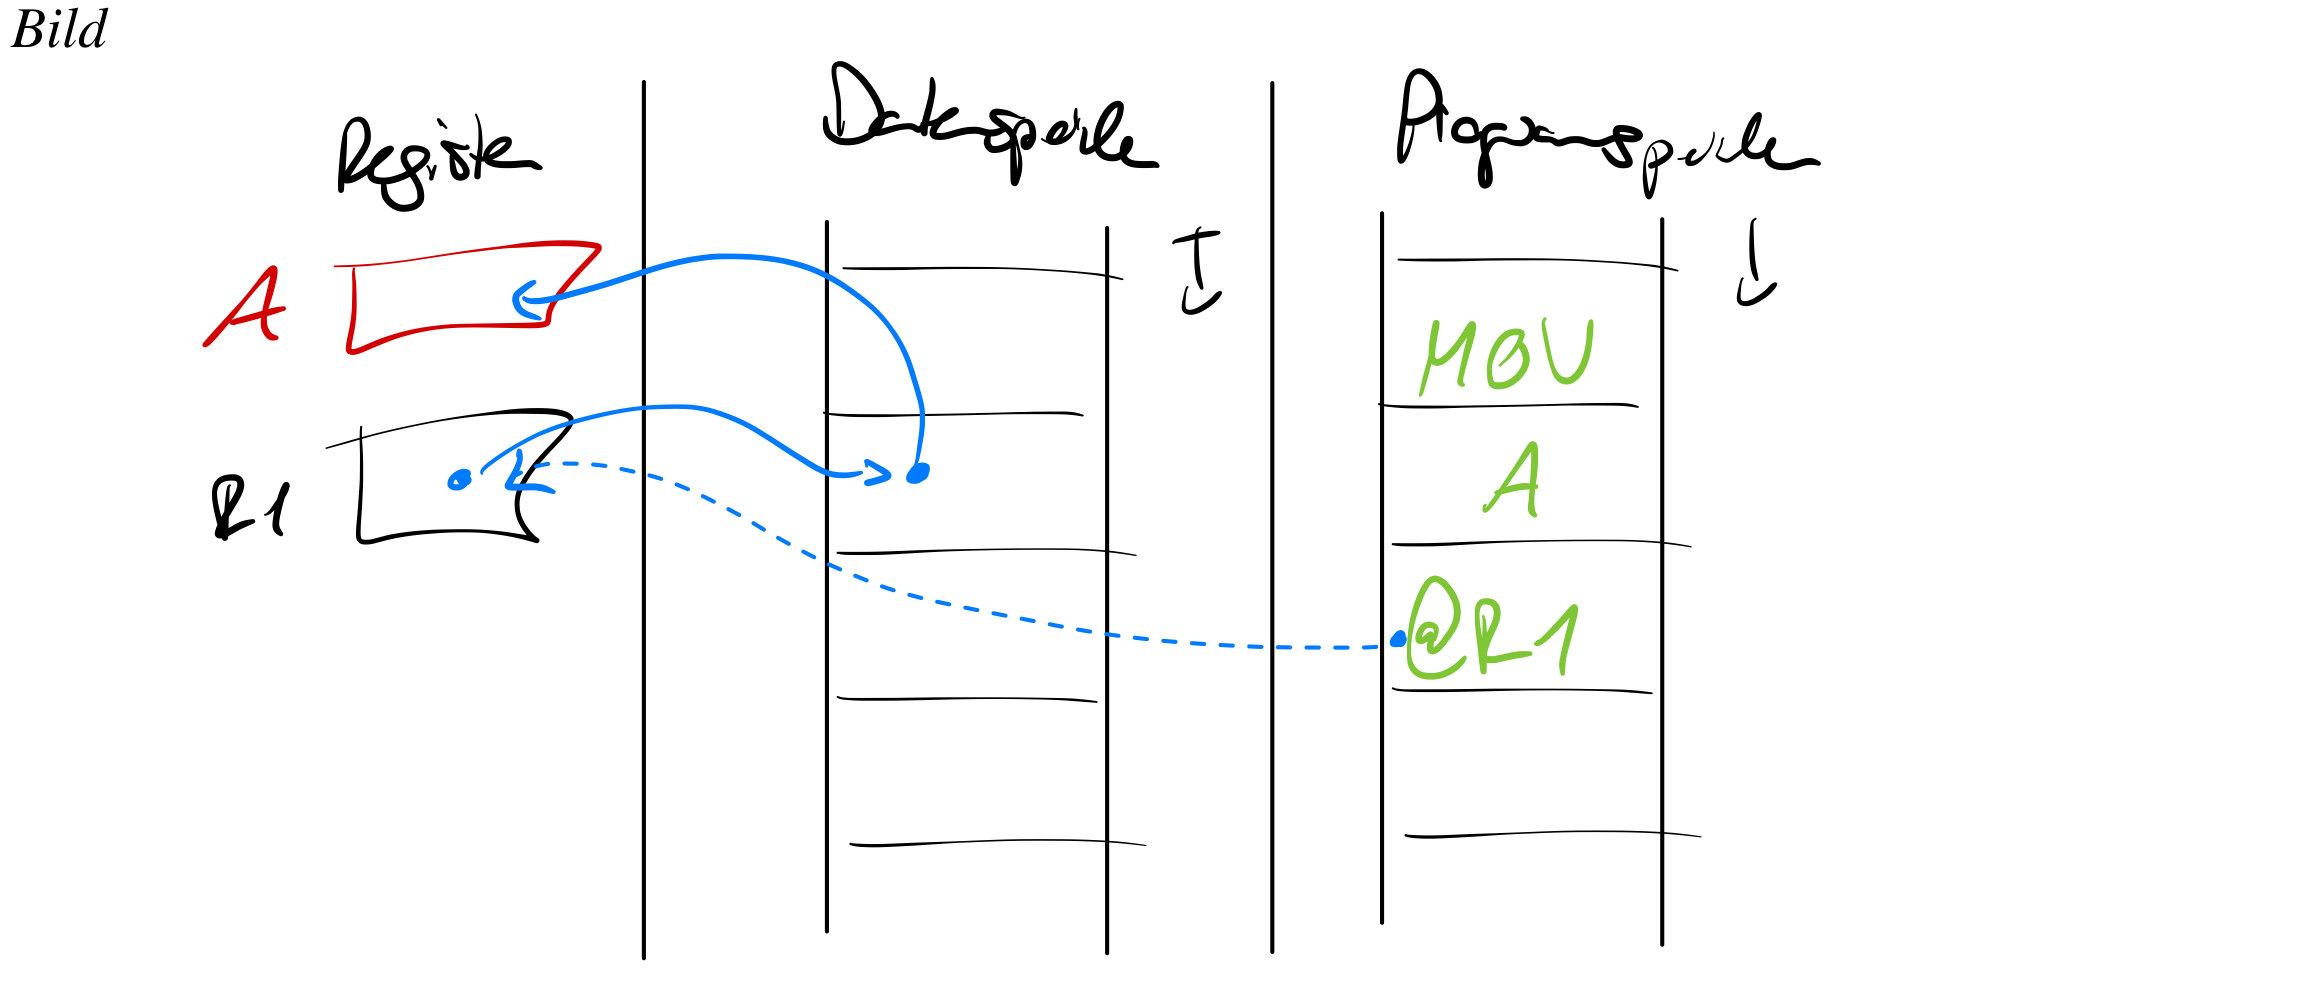 Bild
Register
Datenspeicher
Programmspeicher
A
MOV
R1
A
@R1